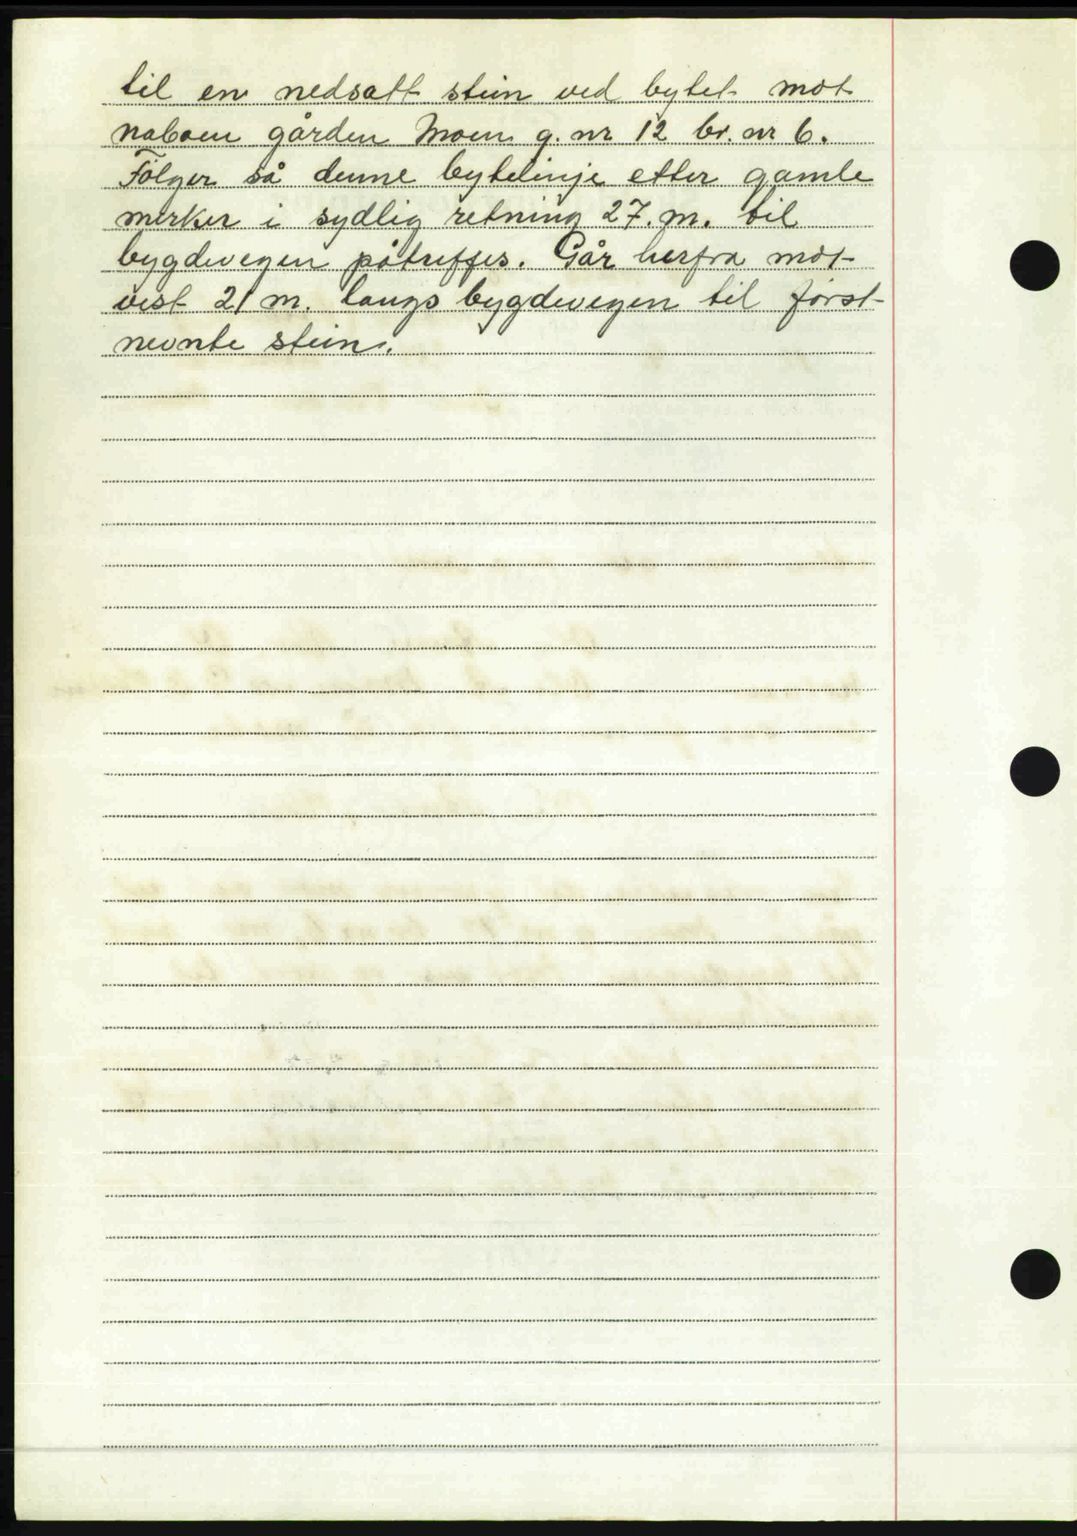 til en nedsatt stein ved bytet mot
naboen gården Moen g. nr 12 br. nr 6.
Følger så denne bytelinje etter gamle
merker i sydlig retning 27. m. til
bygdevegen påtreffes. Går herfra mot
vest 21 m. langs bygdevegen til først-
nevnte stein.